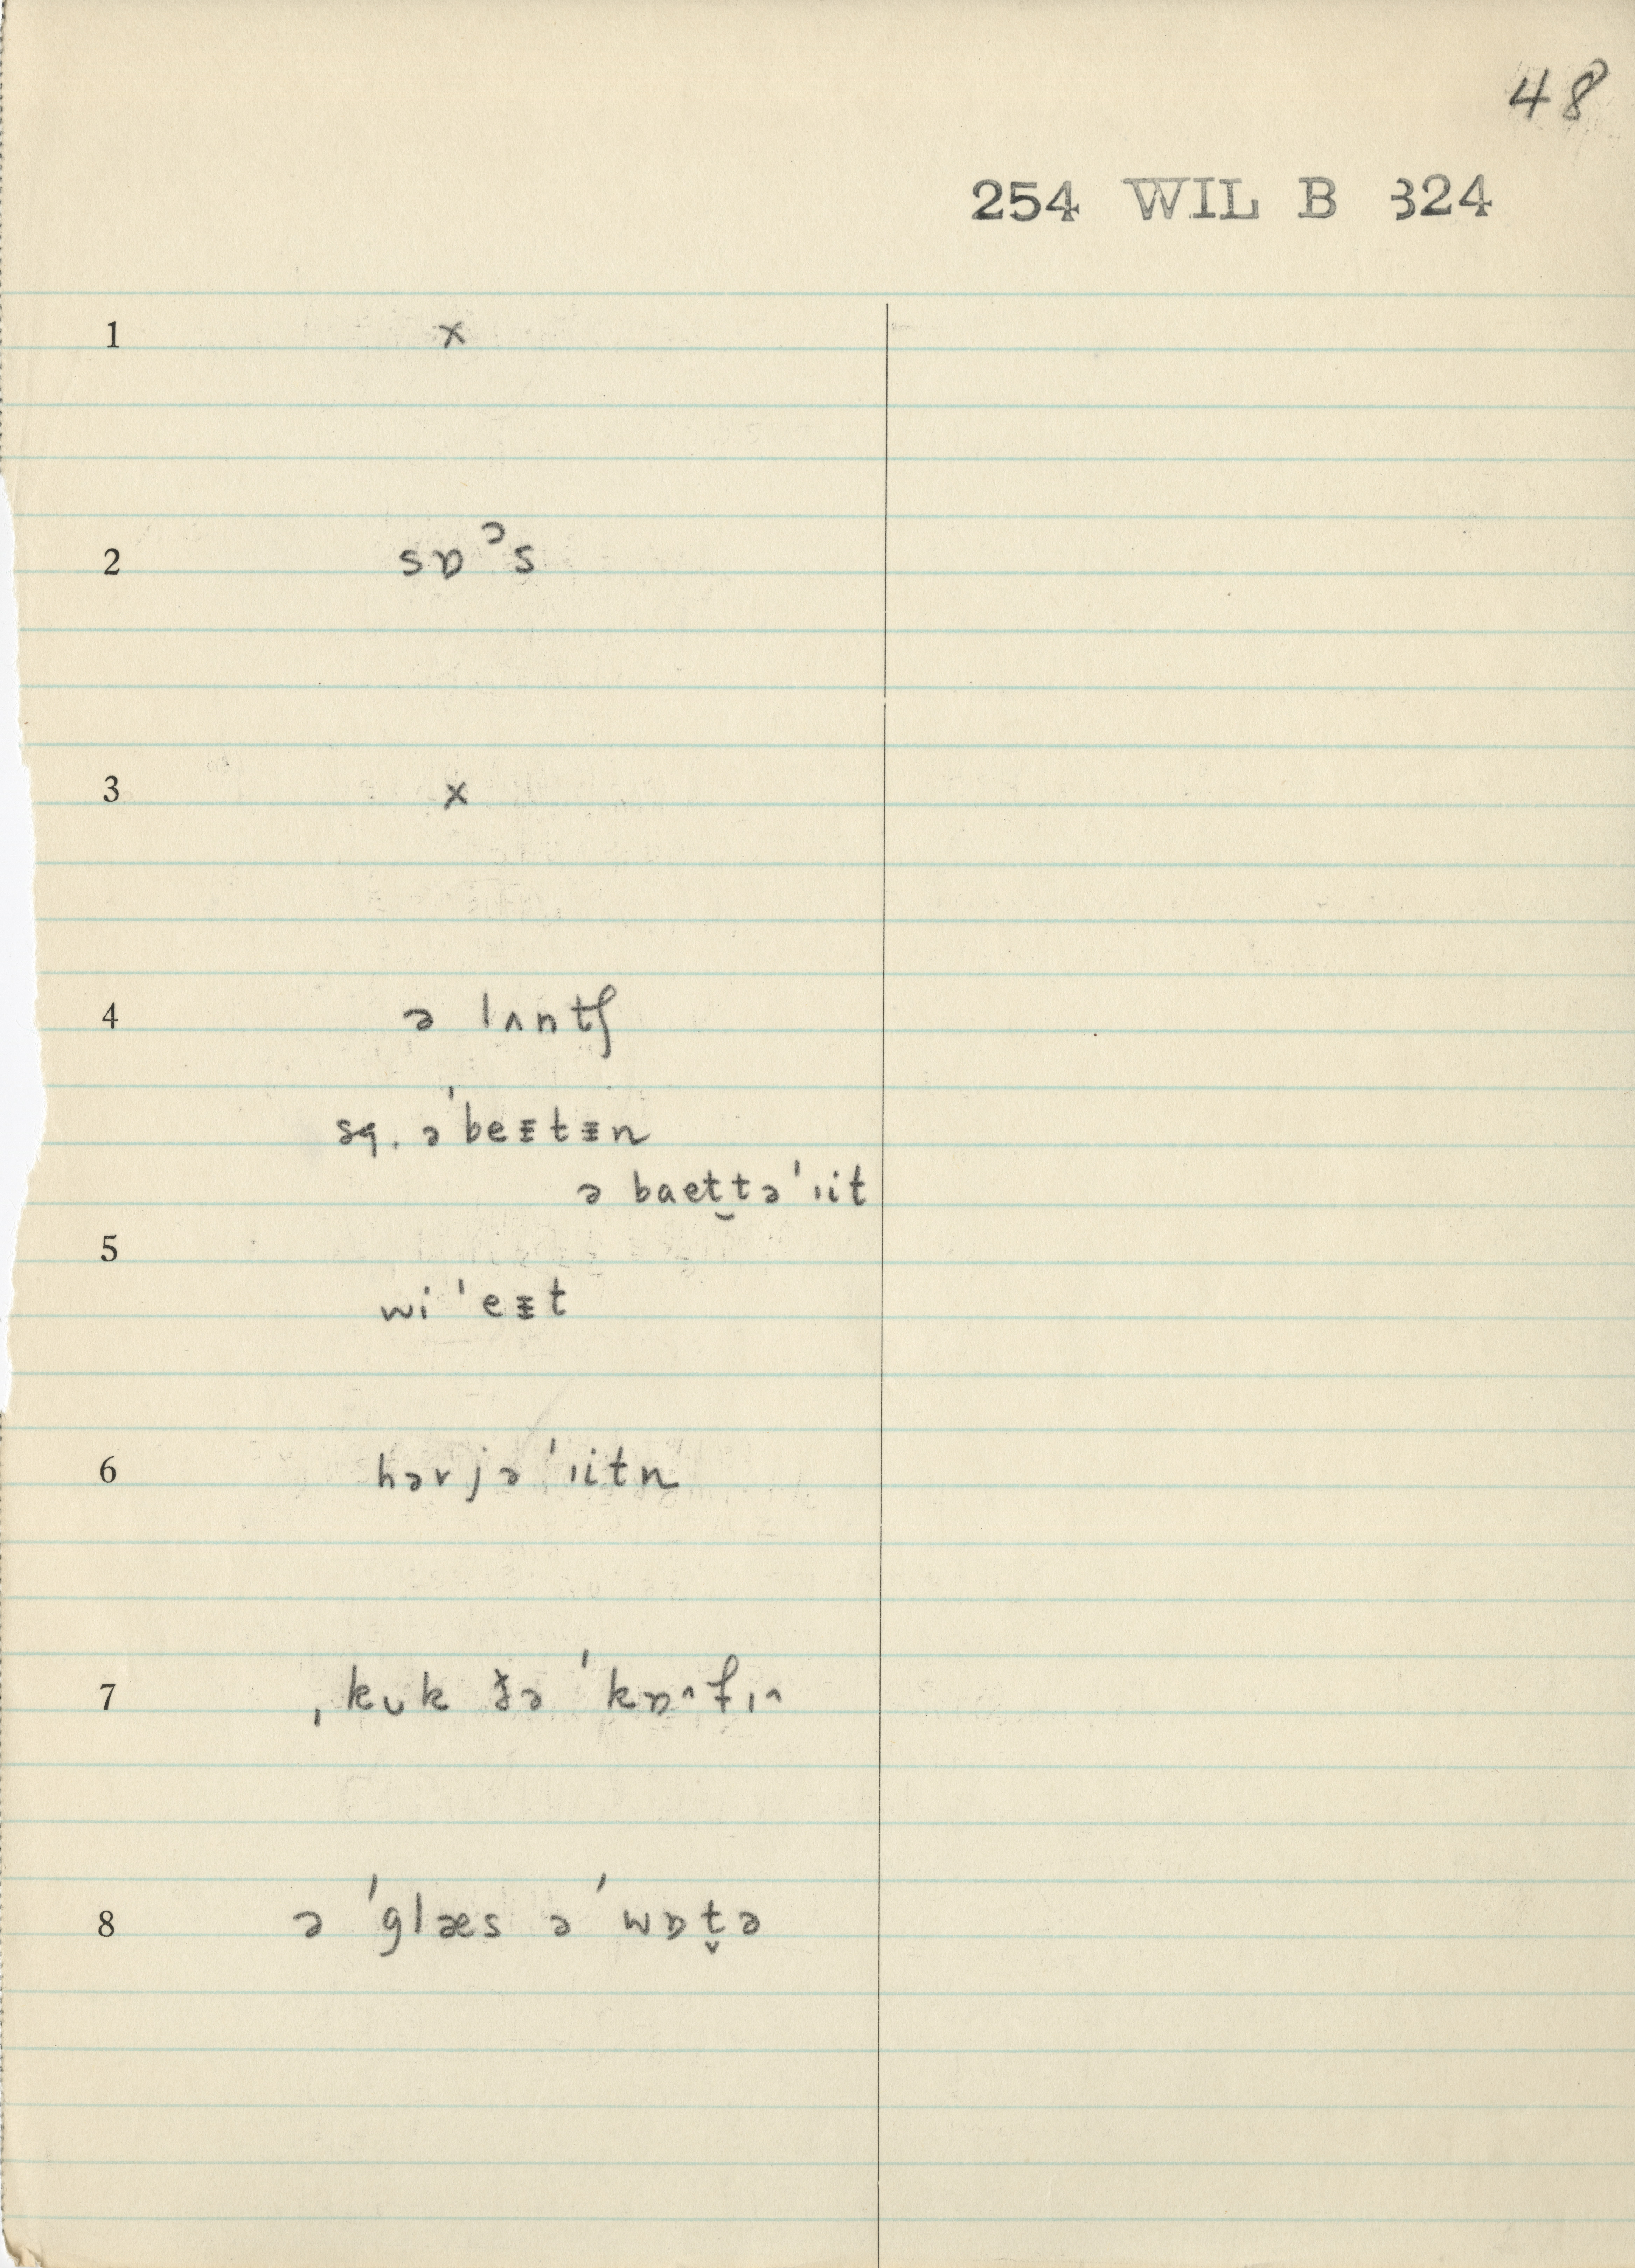 48
254 WIL B 324
1 x
2 sɒᵓs
3 x
4 ə lʌntʃ
sq. əˈbeᵻtᵻn
ə baet̬təˈɪit
5
wiˈeᵻt
6 hərjəˈɪitn
7 ˌkʊk ðəˈkɒ^fɪ^
8 ə ˈglæs əˈwɒt̬ə